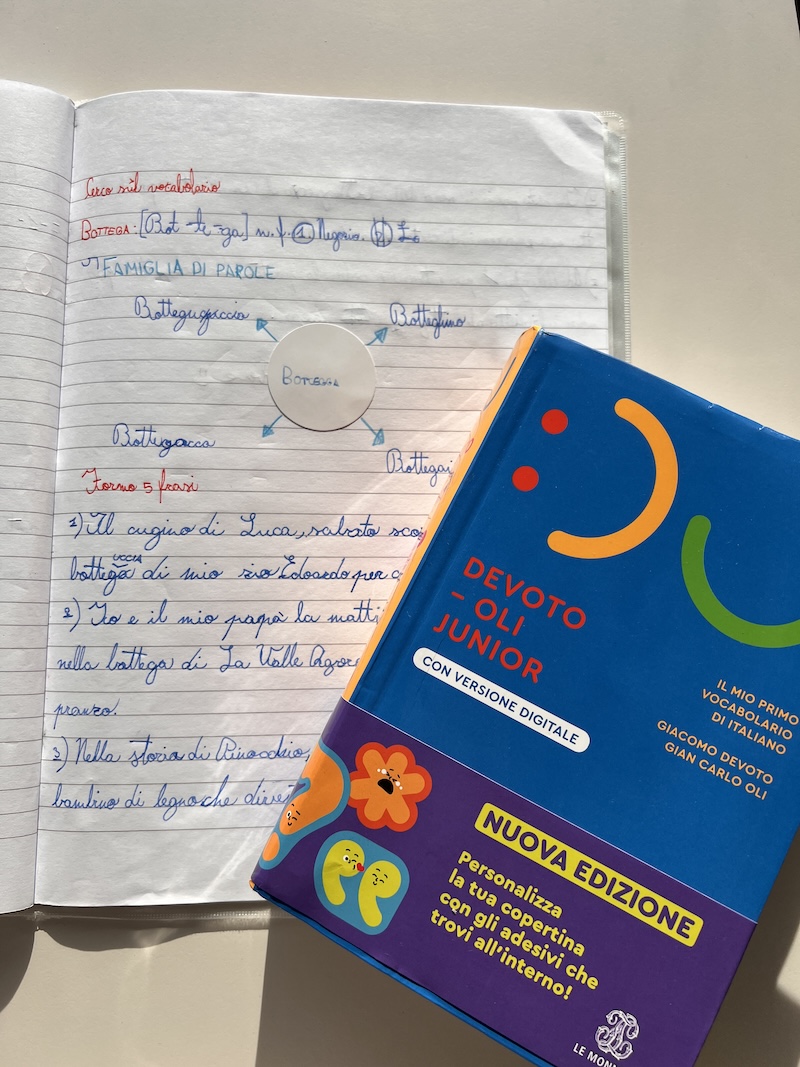 Cerco sul vocabolario
BOTTEGA: [Bot-te-ga] n. f. 1. Negozio. 2
FAMIGLIA DI PAROLE
Botteghino
BOTTEGA
Bottegacca
Bottegai
Formo 5 frasi
1) Il cugino di Luca,
bottega UCCIA di mio zio Edoardo per
2) Io e il mio papà la matti
nella bottega di La Valle Agor
pranzo.
3) Nella storia di Pinocchio,
bambino di legno che divent
DEVOTO
– OLI
JUNIOR
CON VERSIONE DIGITALE
IL MIO PRIMO
VOCABOLARIO
DI ITALIANO
GIACOMO DEVOTO
GIAN CARLO OLI
NUOVA EDIZIONE
Personalizza
la tua copertina
con gli adesivi che
trovi all'interno!
LE MON